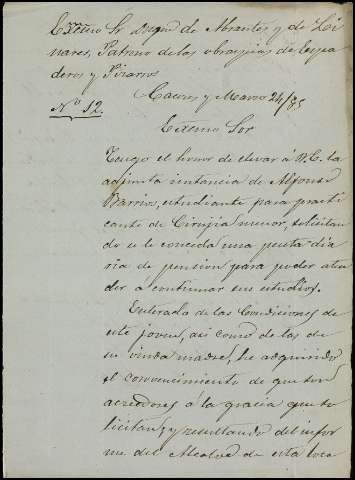 Exmo Sr Duque de Abrantes y de Li-
nares, Patrono de las obras pias de Espa-
deros y Pizarros
Caceres y Marzo 24/85
No 12.
Excmo Sor
Tengo el honor de elevar á V.E. la
adjunta instancia de Alfonso
Barrios, estudiante para practi
cante de Cirujia menor, solicitan
do se le conceda una peseta dia
ria de pension para poder aten
der á continuar sus estudios.
Enterado de las Condiciones de
este joven, asi como de las de
su viuda madre, he adquirido
el convencimiento de que son
acreedores a la gracia que so
licitan; y resultando del infor
me del Alcalde de esta loca